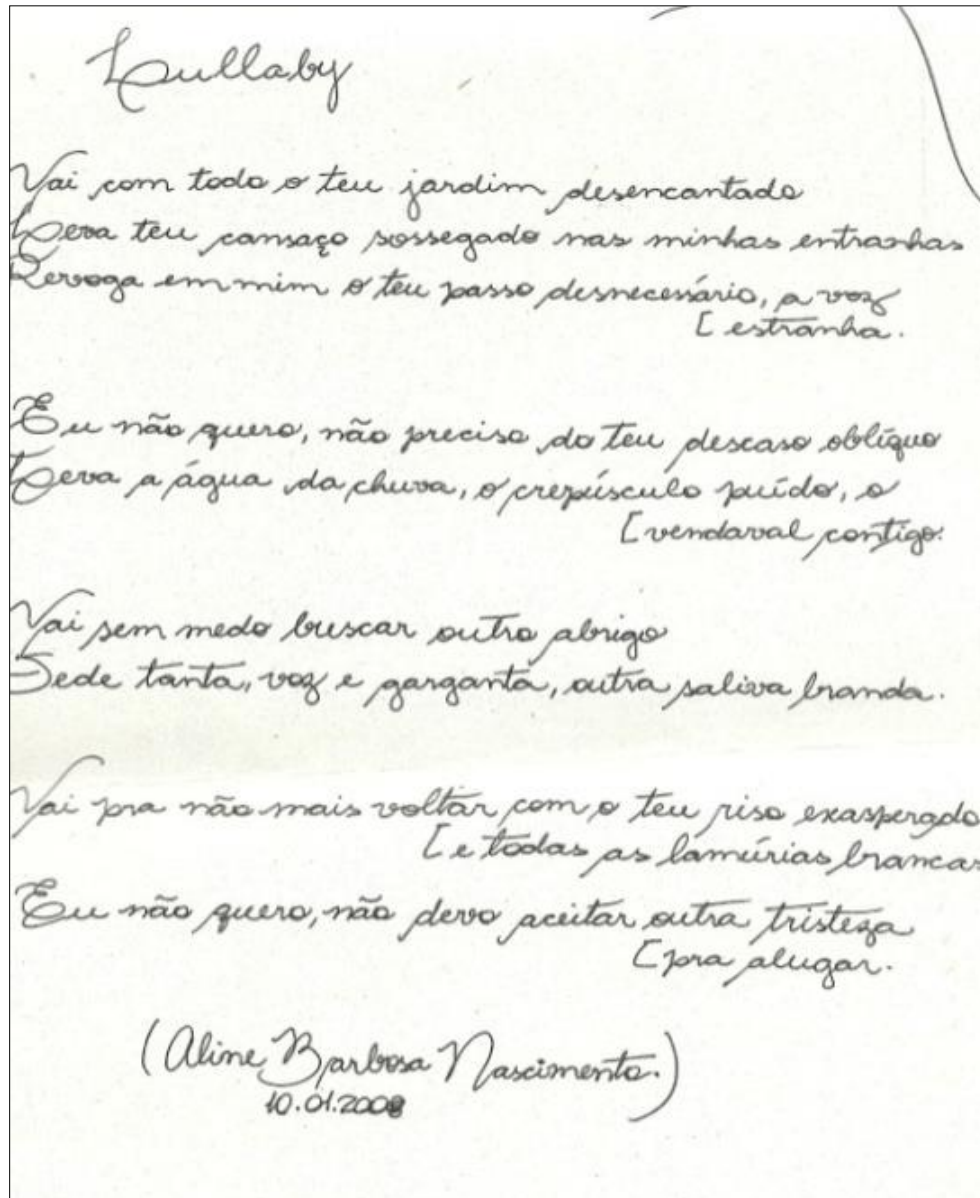 Lullaby
Vai com todo o teu jardim desencantado
Leva teu cansaço sossegado nas minhas entranhas
Revoga em mim o teu passo desnecessário, a voz
[estranha.
Eu não quero, não preciso do teu descaso oblíquo
Leva a água da chuva, o crepúsculo puído, o
[vendaval contigo.
Vai sem medo buscar outro abrigo
Sede tanta, voz e garganta, outra saliva branda.
Vai pra não mais voltar com o teu riso exasperado
[e todas as lamúrias brancas
Eu não quero, não devo aceitar outra tristeza
[pra alugar.
(Aline Barbosa Nascimento.)
10.01.2008